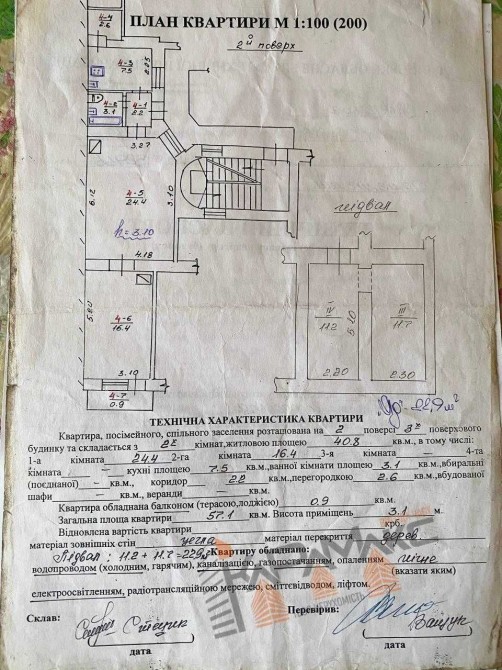 ПЛАН КВАРТИРИ М 1:100 (200)
2й поверх
4-4
2.6
4-3
7.5
2.25
4-2
3.1
4-1
2.2
3.27
6.12
4-5
24.4
3.10
h = 3.10
4.18
підвал
5.20
4-6
16.4
3.19
4-7
0.9
IV
11.2
5.20
2.20
III
11.7
2.30
22,9 м²
ТЕХНІЧНА ХАРАКТЕРИСТИКА КВАРТИРИ
Квартира, посімейного, спільного заселення розташована на 2 поверсі 3х поверхового
будинку та складається з 2х кімнат, житловою площею 40.8 кв.м., в тому числі:
1-а кімната 24.4 2-га кімната 16.4 3-я кімната – 4-та
кімната кухні площею 7.5 кв.м., ванної кімнати площею 3.1 кв.м., вбиральні
(поєднаної) – кв.м., коридор 2.2 кв.м., перегородкою 2.6 кв.м., вбудованої
шафи – кв.м., веранди – кв.м.
Квартира обладнана балконом (терасою, лоджією) 0.9 кв.м.
Загальна площа квартири 57.1 кв.м. Висота приміщень 3.1 м.
Відновлена вартість квартири крб.
матеріал зовнішніх стін цегла матеріал перекриття дерев.
Підвал: 11.2 + 11.7 = 22.9 м² Квартиру обладнано:
водопроводом (холодним, гарячим), каналізацією, газопостачанням, опаленням пічне
(вказати яким)
електроосвітленням, радіотрансляційною мережею, сміттєвідводом, ліфтом.
Склав: Перевірив:
дата дата